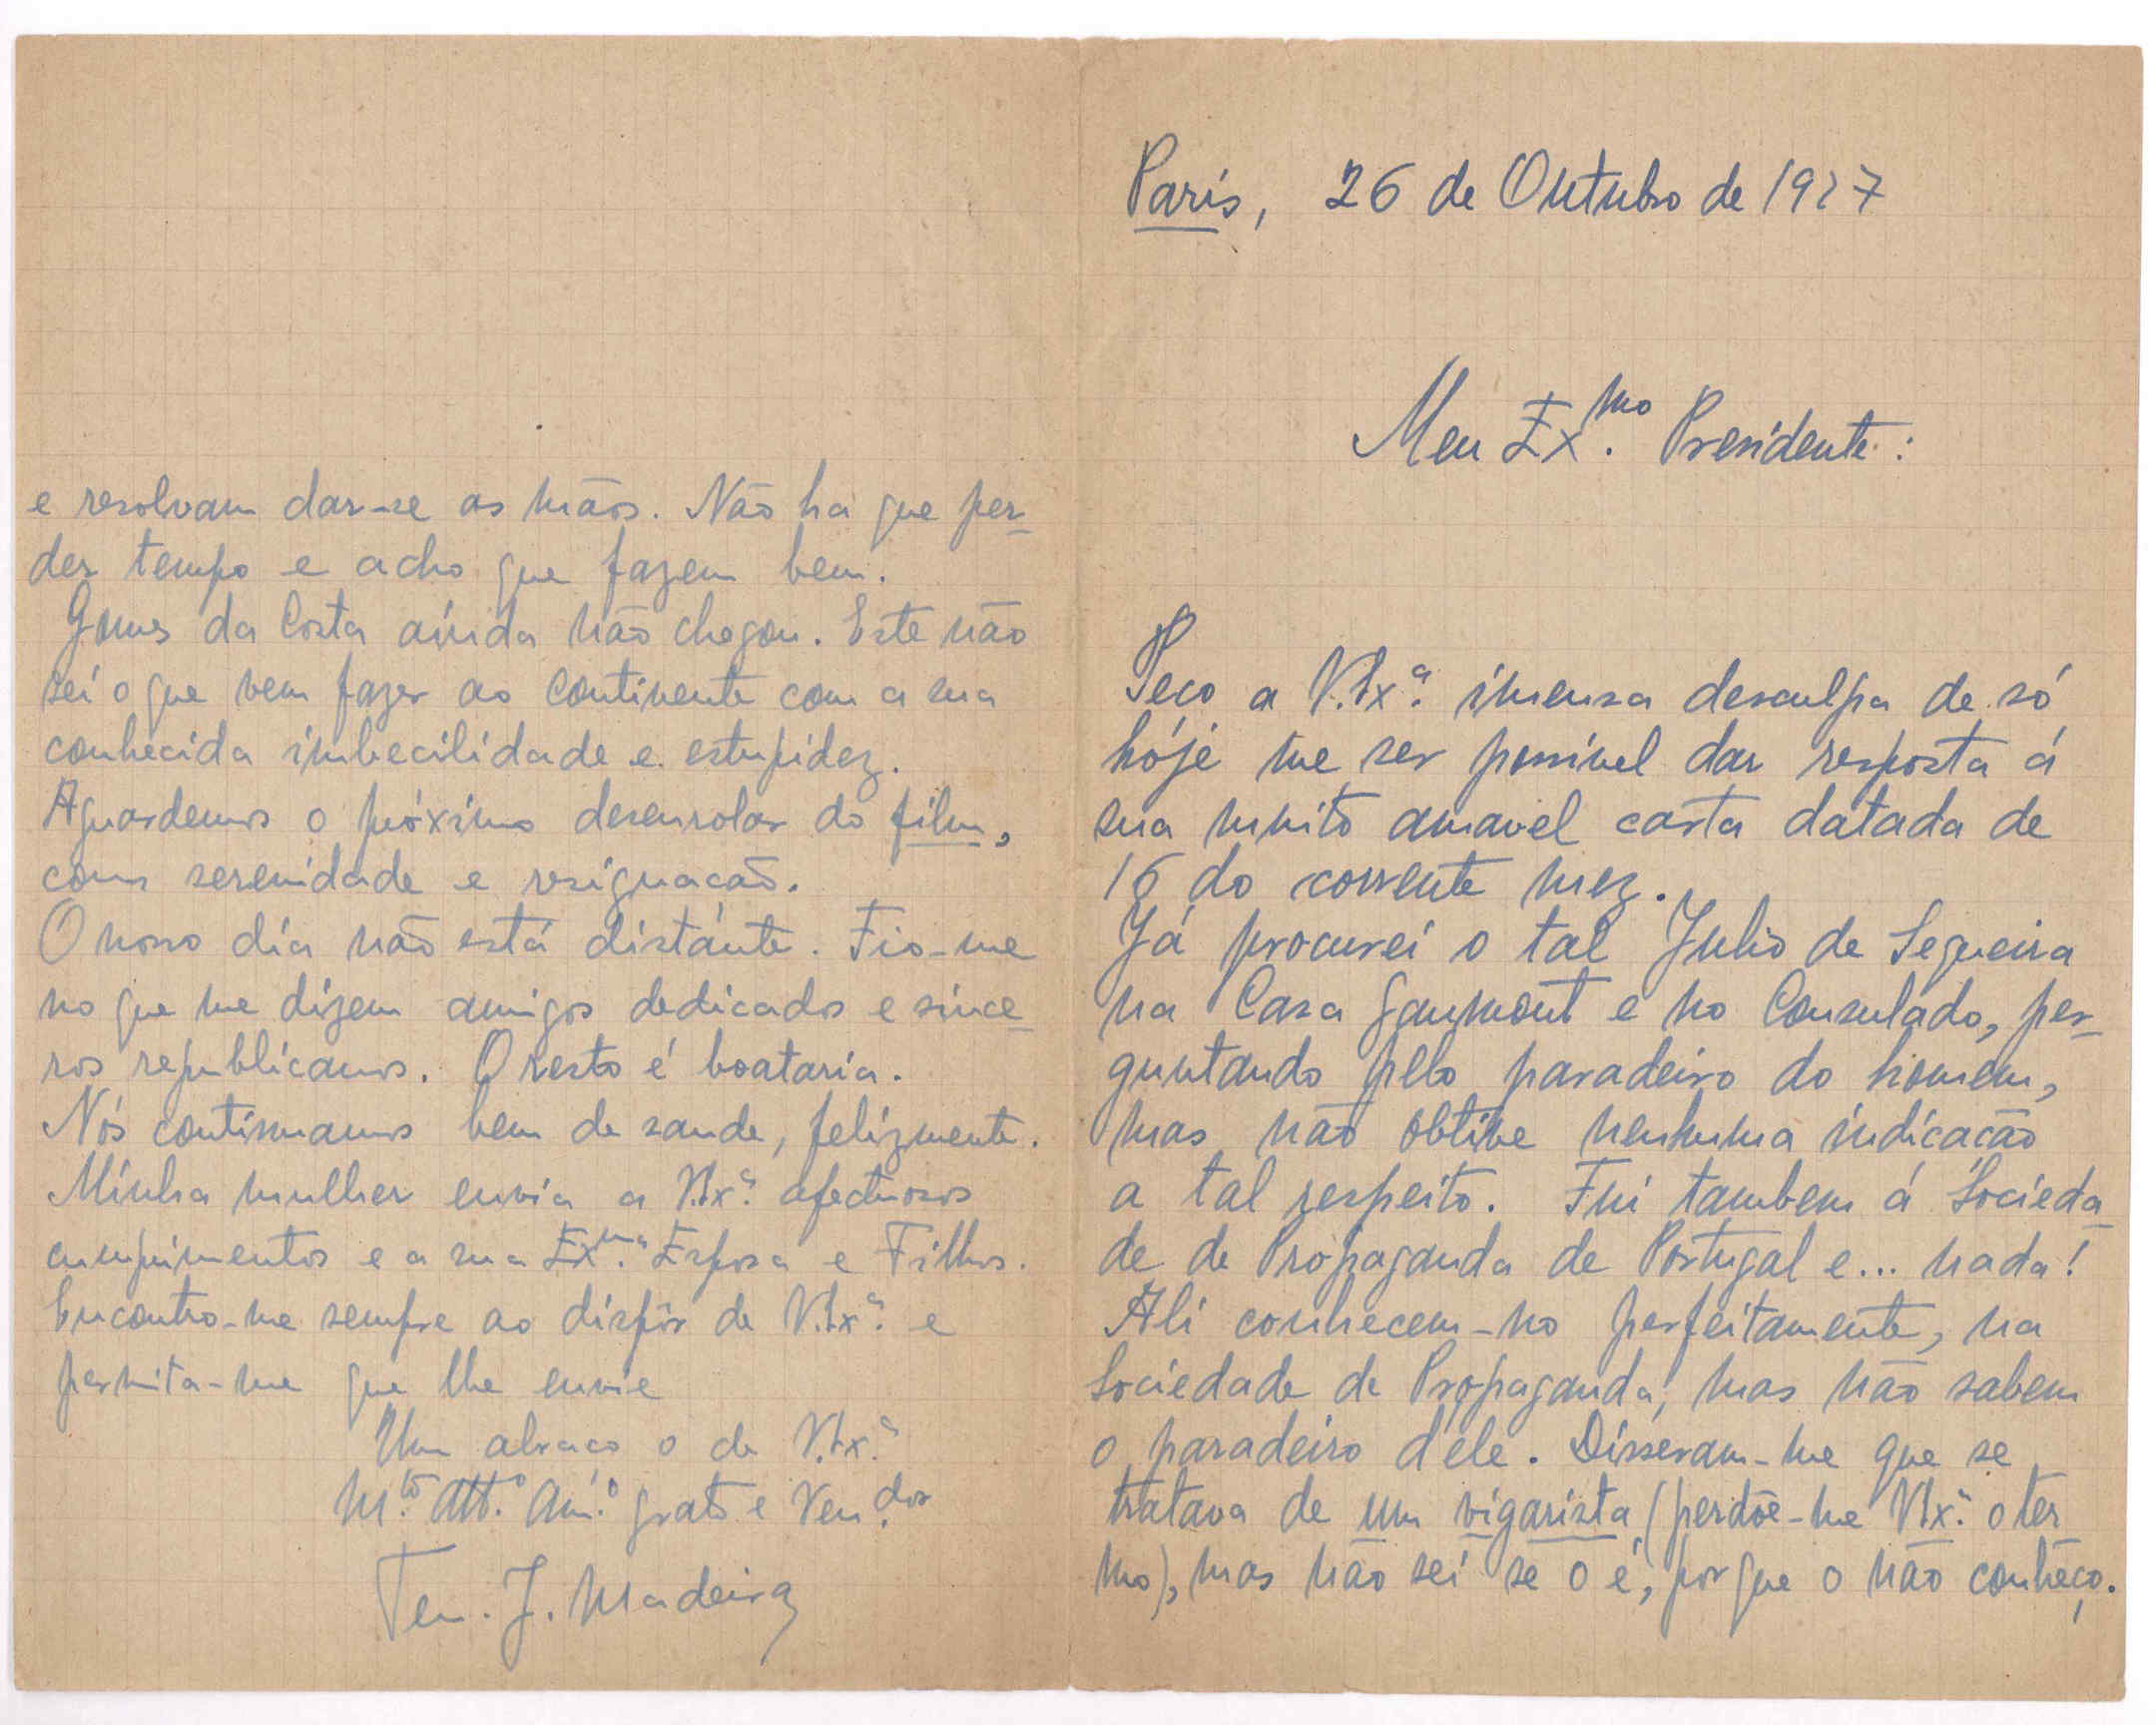 Paris, 26 de Outubro de 1927
Meu Ex.mo Presidente:
Peço a V.Exª. imensa desculpa de só
hóje me ser possivel dar resposta á
sua muito amavel carta datada de
16 do corrente mez.
Já procurei o tal Julio de Sequeira
na Casa Gaumont e no Consulado, per-
guntando pelo paradeiro do homem,
mas não obtive nenhuma indicação
a tal respeito. Fui tambem á Socieda-
de de Propaganda de Portugal e... nada!
Ali conhecem-no perfeitamente, na
Sociedade de Propaganda, mas não sabem
o paradeiro d'ele. Disseram-me que se
tratava de um vigarista (perdõe-me V.Exª. o ter-
mo), mas não sei se o é, porque o não conheço.
e resolvam dar-se as mãos. Não ha que per-
der tempo e acho que fazem bem.
Gomes da Costa ainda não chegou. Este não
sei o que vem fazer ao Continente com a sua
conhecida imbecilidade e estupidez.
Aguardemos o próximo desenrolar do film,
com serenidade e resignação.
O nosso dia não está distánte. Fio-me
no que me dizem amigos dedicados e since-
ros republicanos. O resto é boataria.
Nós continuamos bem de saude, felizmente.
Minha mulher envia a V.Exª. afectuosos
cumprimentos e a sua Ex.ma Esposa e Filhos.
Encontro-me sempre ao dispôr de V.Exª. e
permita-me que lhe envie
Um abraço o de V.Exª.
M.to Att.º Am.º grato e Ven.dor
Ten. J. Madeira